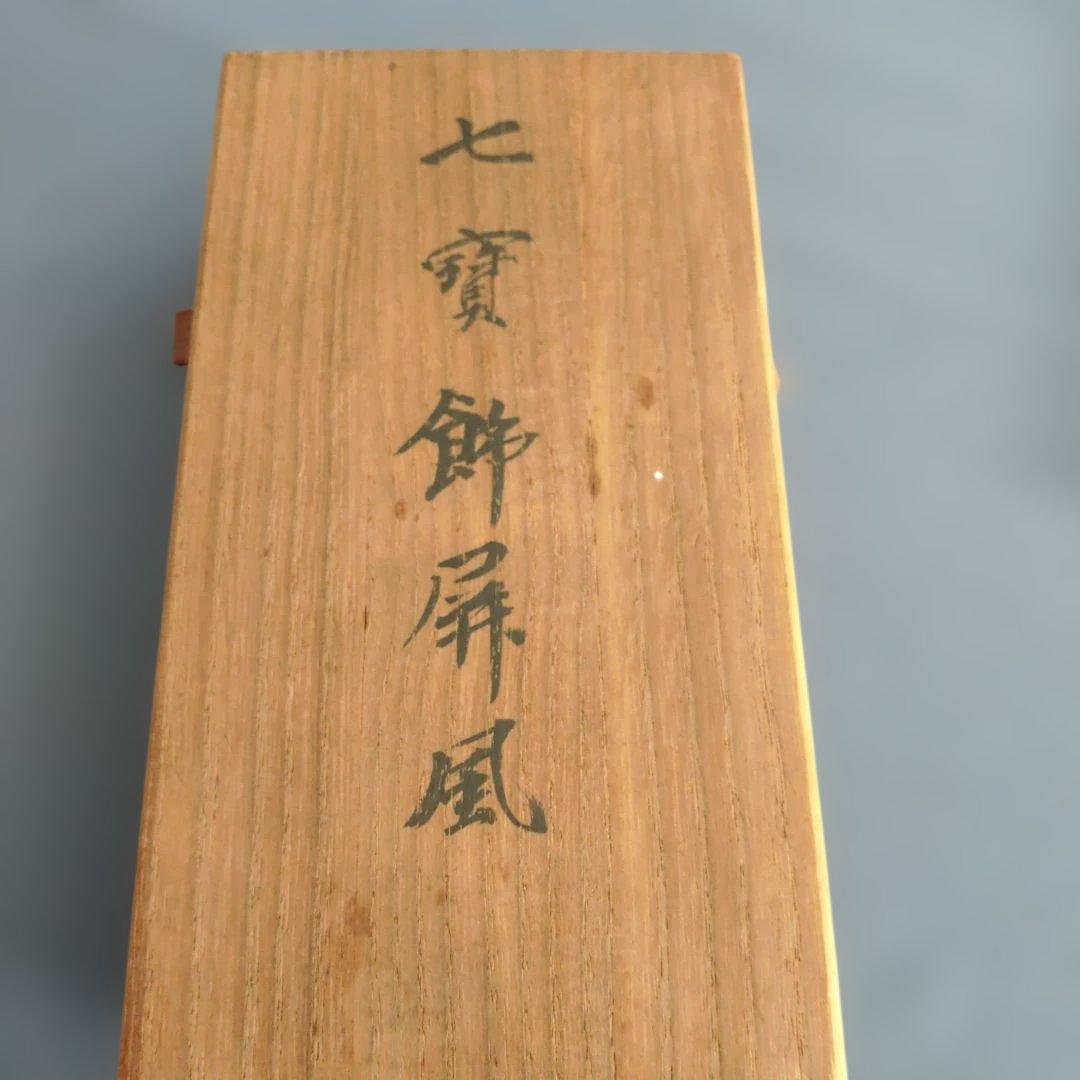 七寶飾屏風